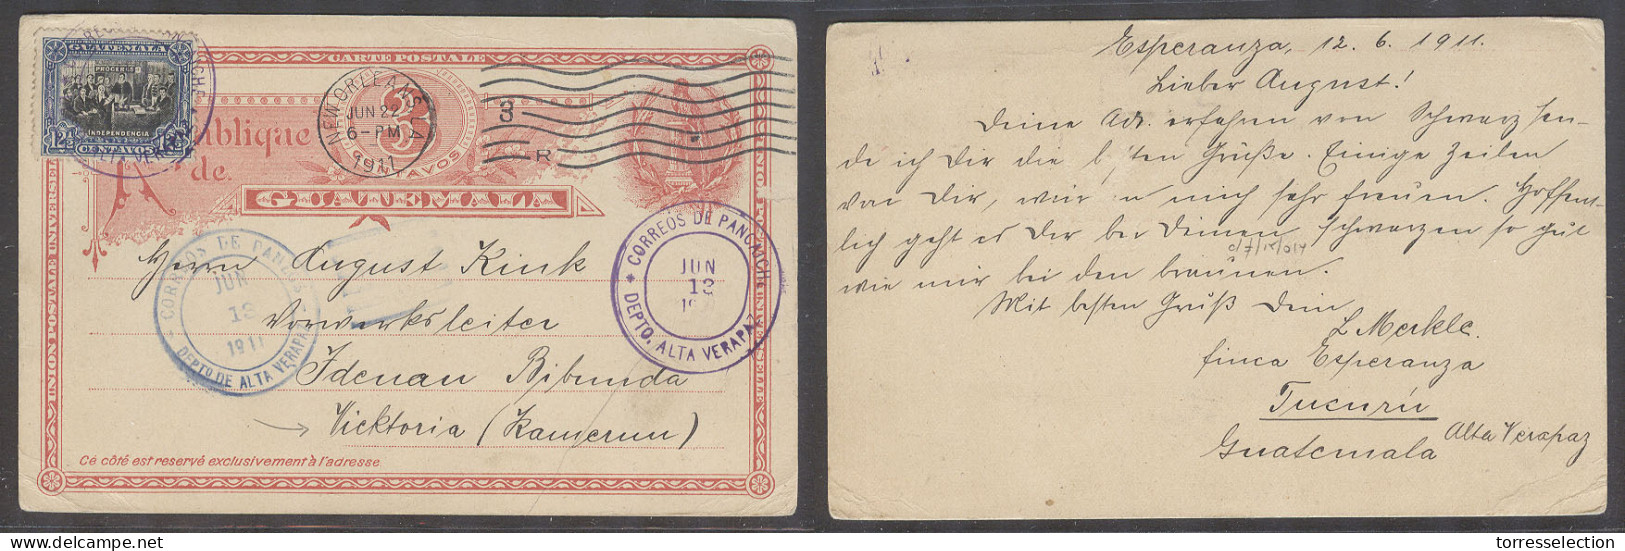 GUATEMALA
PROCERES
INDEPENDENCIA
12½ CENTAVOS 12½
CARTE POSTALE
République
de.
GUATEMALA
3
CENTAVOS
NEW ORLEANS, LA
JUN 22
6-PM
1911
3
R
UNION POSTALE UNIVERSELLE
CORREOS DE PANZOS
JUN
13
1911
DEPTO DE ALTA VERAPAZ
CORREOS DE PANCAOCHE
JUN
12
DEPTO. ALTA VERAPAZ
Herrn August Kink
Vorwerksleiter
Idenau Bibunda
Vicktoria (Kamerun)
Ce côté est reservé exclusivement à l'adresse.
Esperanza, 12. 6. 1911.
Lieber August!
Deine Adr. erfahren von Schwarz sen-
de ich Dir die b ten Grüße. Einige Zeilen
von Dir, wür n mich sehr freuen. Hoffent-
lich geht es Dir bei Deinen schwarzen so gut
wie mir bei den braunen.
Mit besten Gruß Dein
L Merkle.
finca Esperanza
Tucurú
Alta Verapaz
Guatemala
torresselection